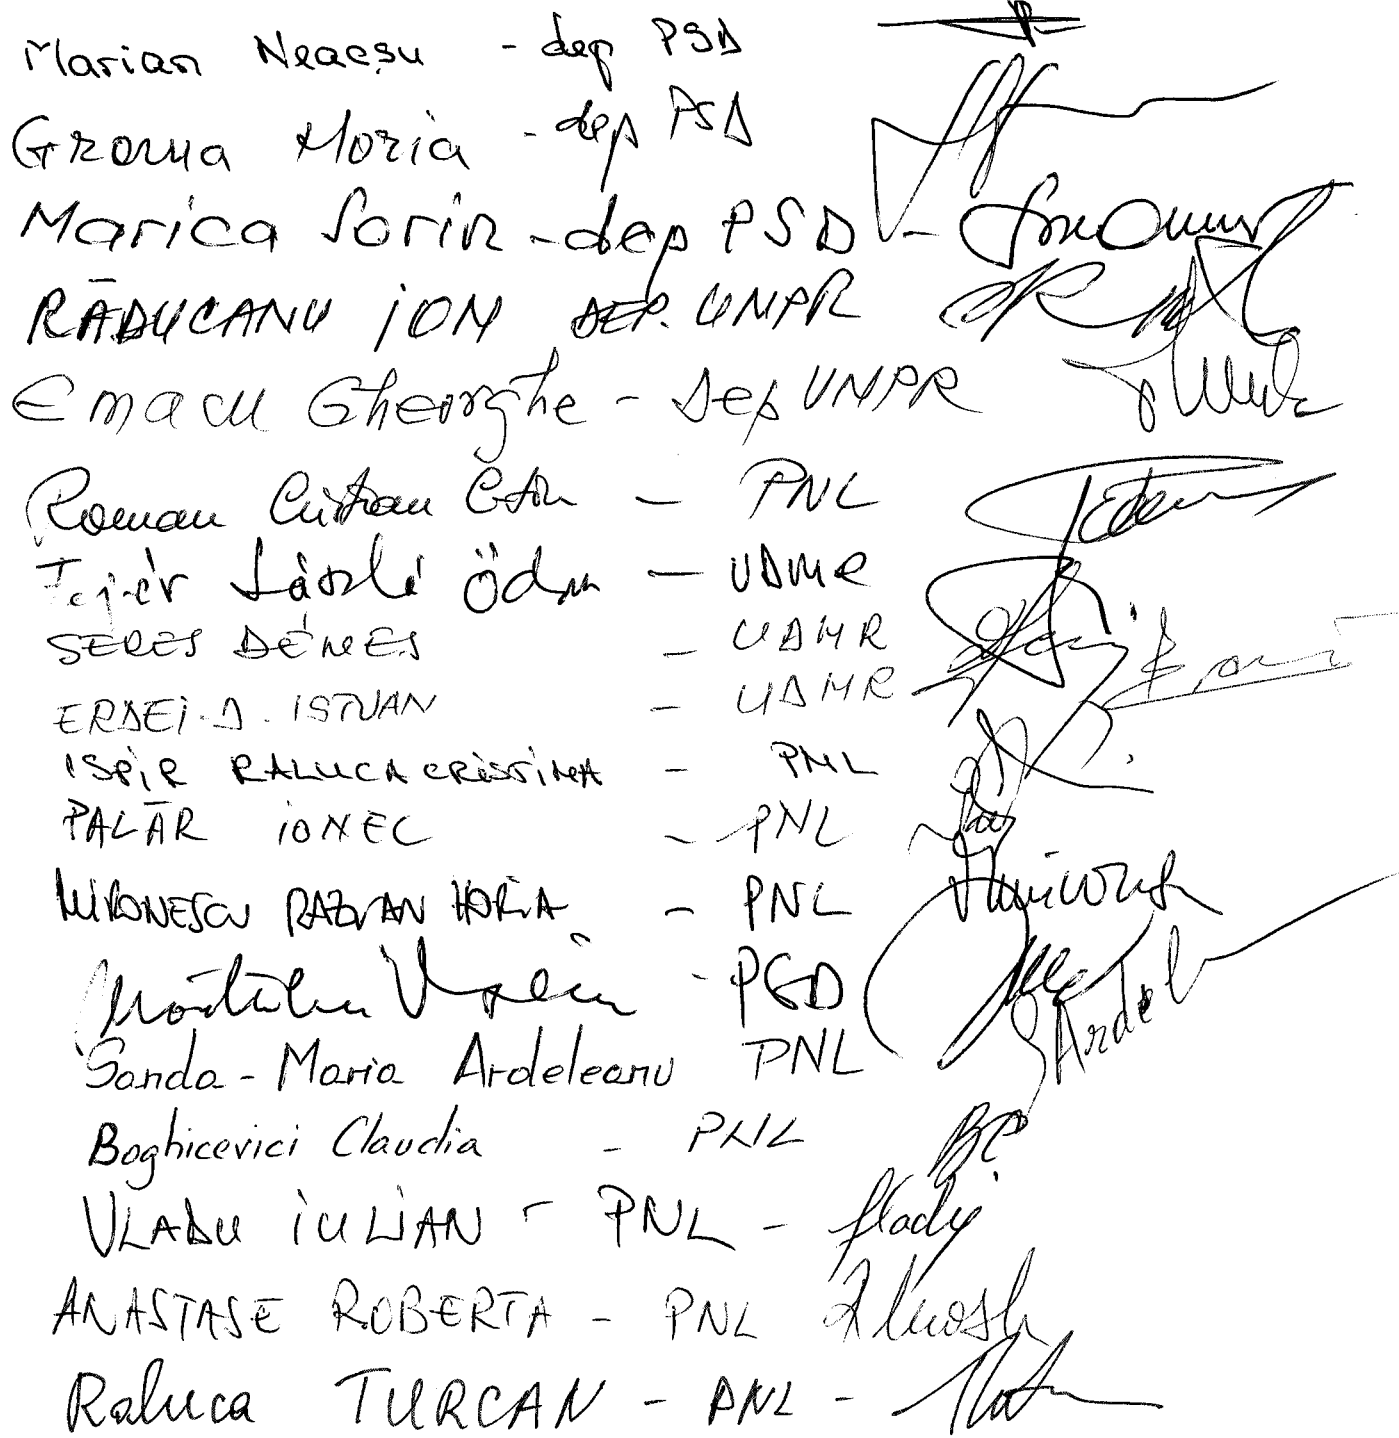 Marian Neacșu - dep PSD
Groma Horia - dep PSD
Marica Sorin - dep PSD -
RĂDUCANU ION DEP. UNPR
Emacu Gheorghe - Dep UNPR
Roman Cristian - PNL
Fejér László Ödön - UDMR
SERES DÉNES - UDMR
ERDEI-D. ISTVAN - UDMR
ISPIR RALUCA CRISTINA - PNL
PALĂR IONEL - PNL
MIRONESCU RAZVAN HORIA - PNL
- PSD
Sanda-Maria Ardeleanu PNL Ardel
Boghicevici Claudia - PNL BC
VLADU IULIAN - PNL - Vladu
ANASTASE ROBERTA - PNL
Raluca TURCAN - PNL -